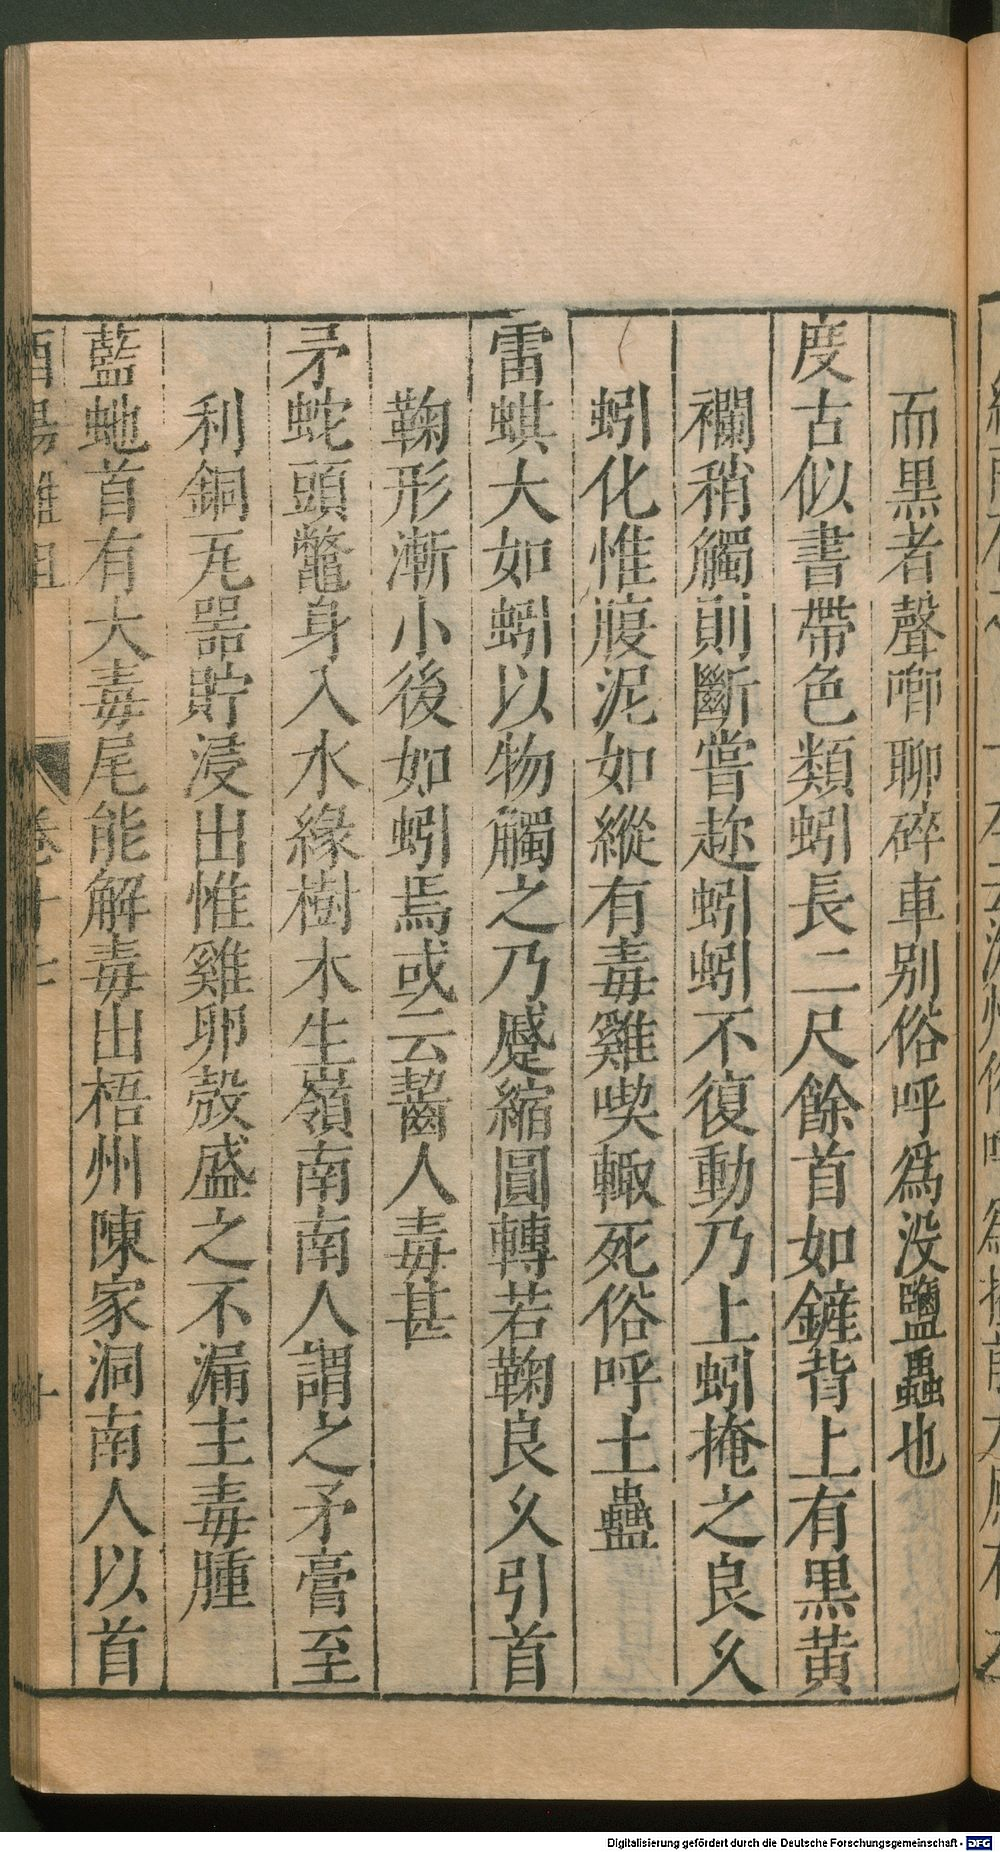 而黒者聲唧聊碎車别俗呼爲没鹽蟲也
度古似書帶色類蚓長二尺餘首如鏟背上有黒黄
襴稍觸則斷嘗趂蚓蚓不復動乃上蚓掩之良乆
蚓化惟腹泥如縱有毒雞喫輙死俗呼土蠱
雷蜞大如蚓以物觸之乃蹙縮圓轉若鞠良乆引首
鞠形漸小後如蚓焉或云齧人毒甚
矛蛇頭鼈身入水緣樹木生嶺南南人謂之矛膏至
利銅瓦噐貯浸出惟雞卵殻盛之不漏主毒腫
藍虵首有大毒尾能解毒出梧州陳家洞南人以首
酉陽雜俎
卷十七
十
Digitalisierung gefördert durch die Deutsche Forschungsgemeinschaft - DFG